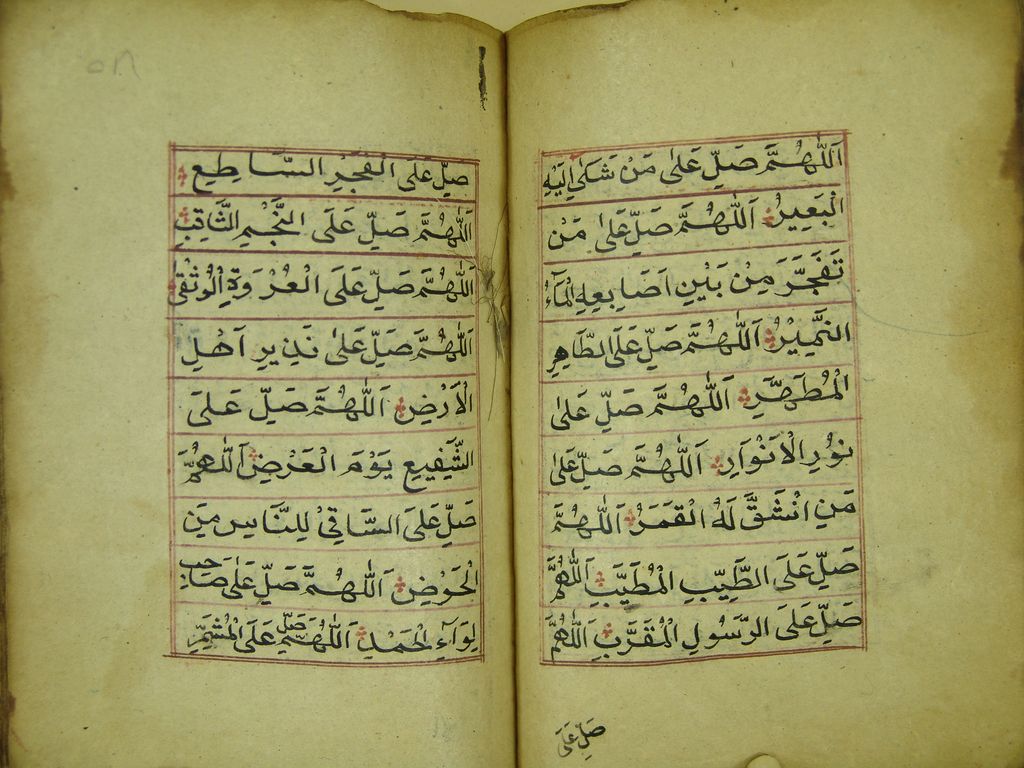 اَللّٰهُمَّ صَلِّ عَلٰى مَنْ شَكٰى اِلَيْهِ
الْبَعِيْرُ اَللّٰهُمَّ صَلِّ عَلٰى مَنْ
تَفَجَّرَ مِنْ بَيْنِ اَصَابِعِهِ الْمَآءُ
النَّمِيْرُ اَللّٰهُمَّ صَلِّ عَلَى الطَّاهِرِ
الْمُطَهَّرِ اَللّٰهُمَّ صَلِّ عَلٰى
نُوْرِ الْاَنْوَارِ اَللّٰهُمَّ صَلِّ عَلٰى
مَنِ انْشَقَّ لَهُ الْقَمَرُ اَللّٰهُمَّ
صَلِّ عَلَى الطَّيِّبِ الْمُطَيَّبِ اَللّٰهُمَّ
صَلِّ عَلَى الرَّسُوْلِ الْمُقَرَّبِ اَللّٰهُمَّ
صَلِّ عَلَى
٥٨
صَلِّ عَلَى الْفَجْرِ السَّاطِعِ
اَللّٰهُمَّ صَلِّ عَلَى النَّجْمِ الثَّاقِبِ
اَللّٰهُمَّ صَلِّ عَلَى الْعُرْوَةِ الْوُثْقٰى
اَللّٰهُمَّ صَلِّ عَلٰى نَذِيْرِ اَهْلِ
الْاَرْضِ اَللّٰهُمَّ صَلِّ عَلَى
الشَّفِيْعِ يَوْمَ الْعَرْضِ اَللّٰهُمَّ
صَلِّ عَلَى السَّاقِيْ لِلنَّاسِ مِنَ
الْحَوْضِ اَللّٰهُمَّ صَلِّ عَلٰى صَاحِبِ
لِوَآءِ الْحَمْدِ اَللّٰهُمَّ صَلِّ عَلَى الْمُشَمِّرِ